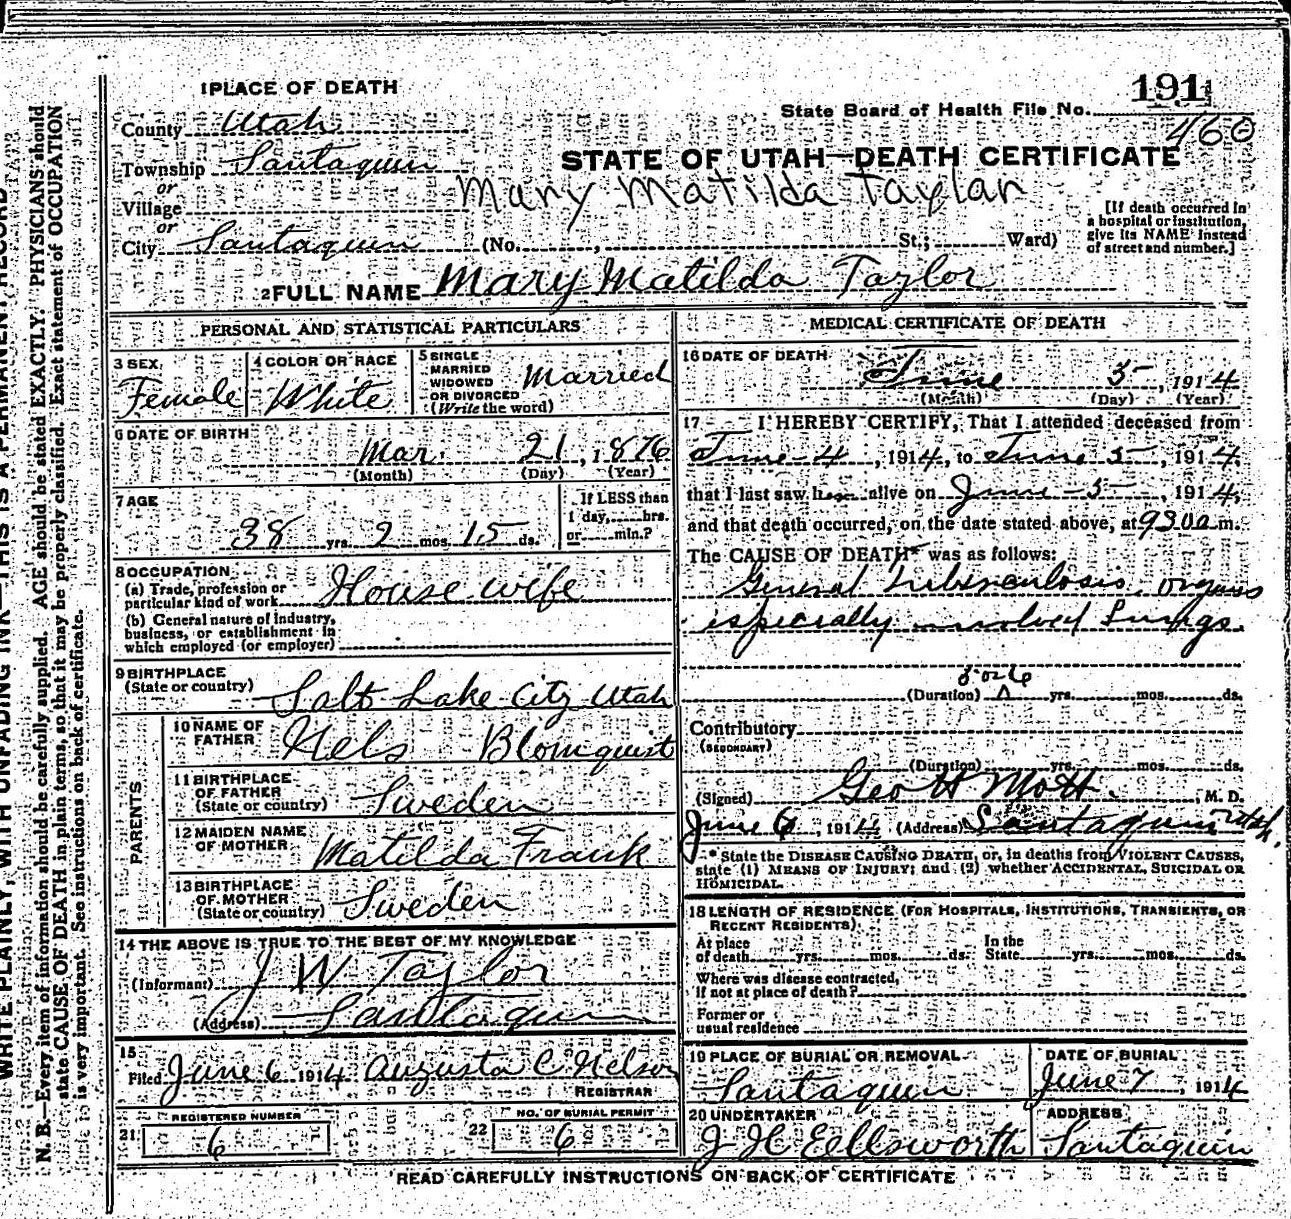 1 PLACE OF DEATH
191
State Board of Health File No.
460
County Utah
Township Santaquin
STATE OF UTAH—DEATH CERTIFICATE
or
Village
Mary Matilda Taylar
or
City Santaquin (No. , St.; Ward)
[If death occurred in
a hospital or institution,
give its NAME instead
of street and number.]
2 FULL NAME Mary Matilda Taylor
PERSONAL AND STATISTICAL PARTICULARS
3 SEX Female
4 COLOR OR RACE White
5 SINGLE
MARRIED
WIDOWED
OR DIVORCED
(Write the word)
Married
6 DATE OF BIRTH
Mar. 21, 1876
(Month) (Day) (Year)
7 AGE
38 yrs. 2 mos. 15 ds.
If LESS than
1 day, hrs.
or min.?
8 OCCUPATION
(a) Trade, profession or
particular kind of work
House wife
(b) General nature of industry,
business, or establishment in
which employed (or employer)
9 BIRTHPLACE
(State or country)
Salt Lake City Utah
PARENTS
10 NAME OF
FATHER
Nels Blomquist
11 BIRTHPLACE
OF FATHER
(State or country)
Sweden
12 MAIDEN NAME
OF MOTHER
Matilda Frank
13 BIRTHPLACE
OF MOTHER
(State or country)
Sweden
14 THE ABOVE IS TRUE TO THE BEST OF MY KNOWLEDGE
(Informant) J W Taylor
(Address) Santaquin
15
Filed June 6 1914 Augusta C. Nelson
REGISTRAR
REGISTERED NUMBER
21 6
NO. OF BURIAL PERMIT
22 6
MEDICAL CERTIFICATE OF DEATH
16 DATE OF DEATH
June 5, 1914
(Month) (Day) (Year)
17 I HEREBY CERTIFY, That I attended deceased from
June 4, 1914, to June 5, 1914,
that I last saw alive on June 5, 1914,
and that death occurred, on the date stated above, at m.
The CAUSE OF DEATH* was as follows:
General tuberculosis, organs
especially involved Lungs.
(Duration) yrs. mos. ds.
Contributory
(SECONDARY)
(Duration) yrs. mos. ds.
(Signed) Geo H Mott, M. D.
June 6, 1914 (Address) Santaquin Utah.
* State the DISEASE CAUSING DEATH, or, in deaths from VIOLENT CAUSES,
state (1) MEANS OF INJURY; and (2) whether ACCIDENTAL, SUICIDAL OR
HOMICIDAL.
18 LENGTH OF RESIDENCE (FOR HOSPITALS, INSTITUTIONS, TRANSIENTS, OR
RECENT RESIDENTS)
At place
of death yrs. mos. ds.
In the
State yrs. mos. ds.
Where was disease contracted,
if not at place of death?
Former or
usual residence
19 PLACE OF BURIAL OR REMOVAL
Santaquin
DATE OF BURIAL
June 7, 1914
20 UNDERTAKER
J H Ellsworth
ADDRESS
Santaquin
READ CAREFULLY INSTRUCTIONS ON BACK OF CERTIFICATE
WRITE PLAINLY, WITH UNFADING INK—THIS IS A PERMANENT RECORD
N. B.—Every item of information should be carefully supplied. AGE should be stated EXACTLY. PHYSICIANS should
state CAUSE OF DEATH in plain terms, so that it may be properly classified. Exact statement of OCCUPATION
is very important. See instructions on back of certificate.